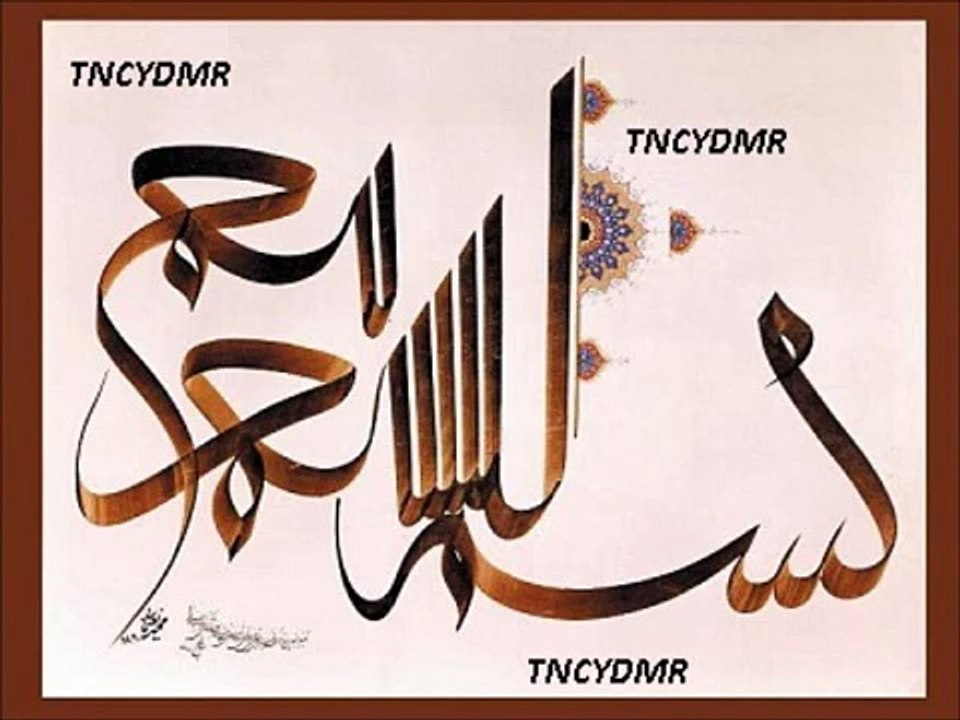 TNCYDMR
TNCYDMR
بسم الله الرحمن الرحيم
TNCYDMR